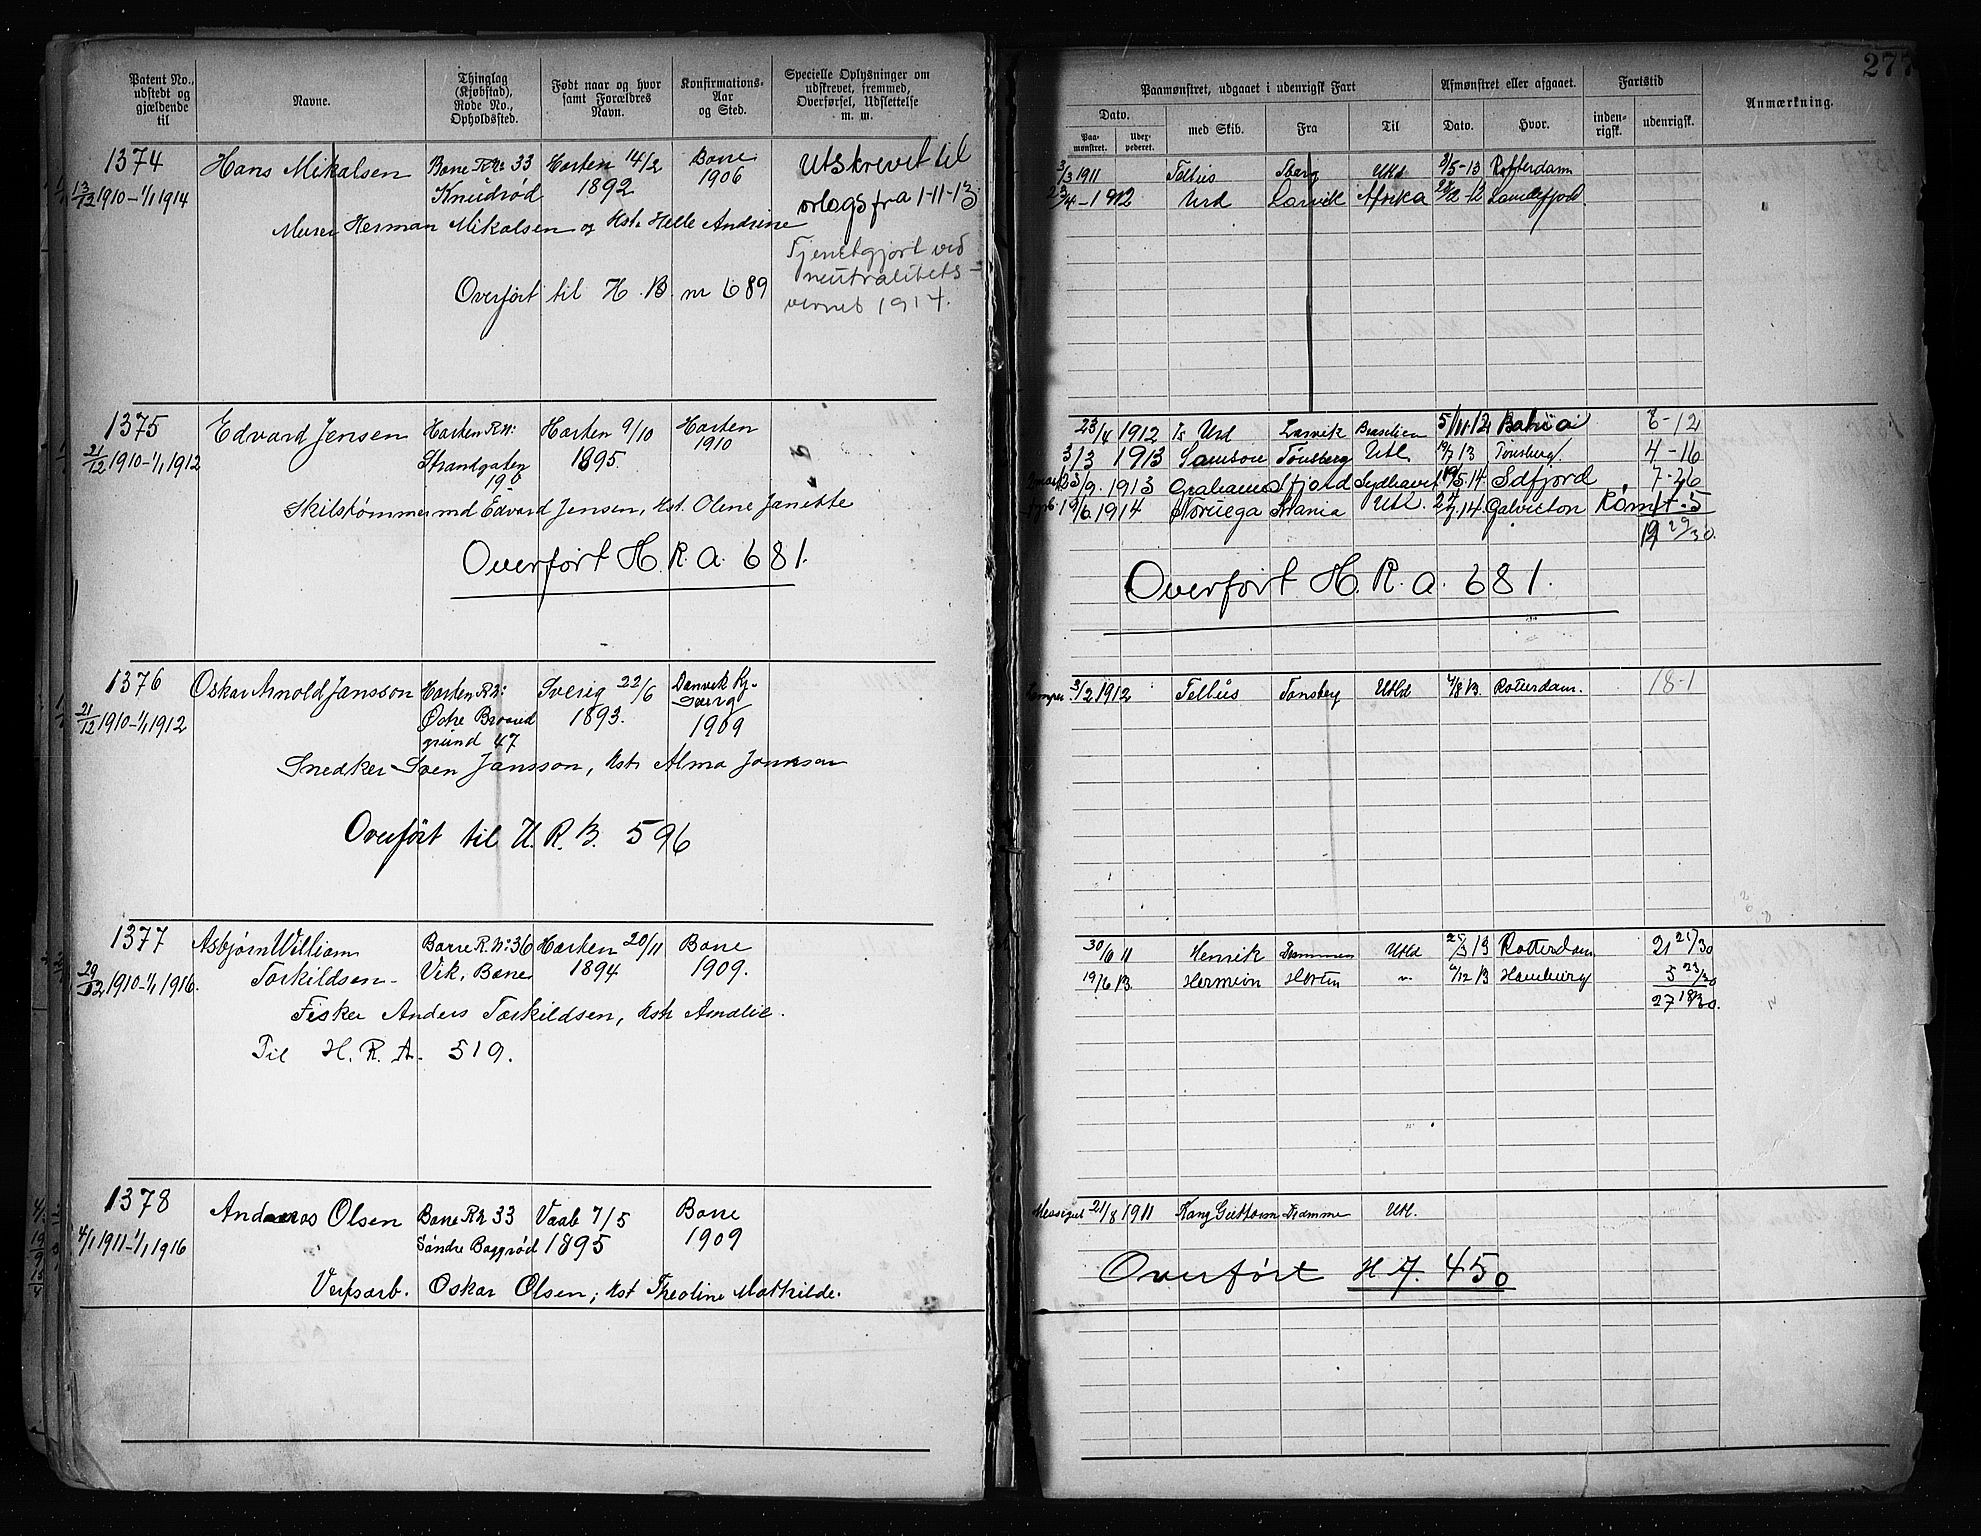 277
Patent No., udstedt og gjældende til
Navne.
Thinglag (Kjøbstad), Rode No., Opholdssted.
Født naar og hvor samt Forældres Navn.
Konfirmations-Aar og Sted.
Specielle Oplysninger om udskrevet, fremmed, Overførsel, Udslettelse m. m.
Paamønstret, udgaaet i udenrigsk Fart
Afmønstret eller afgaaet.
Fartstid
Anmærkning.
Dato.
Paa-mønstret.
med Skib.
Fra
Til
Dato.
Hvor.
inden-rigsk.
udenrigsk.
1374
Hans Mikalsen
13/12 1910-1/1 1914
Knudrød
Horten 14/2
1892
Borre
1906
Utskrevet til
orlogs fra 1-11-13
Murer Herman Mikalsen og Kst. Helle Andrine
Tjenestgjort ved
neutralitets-
vernet 1914.
Overført til H. B nr 689
3/3 1911 Telhus Tberg Utld 3/5-13 Rotterdam
Urd Larvik Afrika Sandefjord
1375
Edvard Jensen
21/12 1910-1/1 1912
Horten R.N:
Strandgaten
19
Horten 9/10
1895.
Horten
1910
Edvard Jensen, Kst. Oline Janette
Overført H. R. A. 681.
23/4 1912 Urd Larvik Brasilien 5/11-12 Bahia 8-12
3/3 1913 Samson Tønsberg Utl. 13 Tønsberg 4-16
23/9. 1913 Sydhavet 5.14 Sdfjord 7-26
1914 Noruega Kania Utl. 14 Galveston Rømt.
29/30
Overført H. R. a. 681.
1376
Oskar Arnold Jansson
21/12 1910-1/1 1912
Horten R.N:
Østre Braarud
grund 47
Sverig 22/6
1893.
1909
Snedker Sven Jansson, Kst. Alma Jansson
Overført til H. R. B. 596
3/2 1912 Telhus Tønsberg Utld 4/8 13 Rotterdam. 18-1
1377
Asbjørn William
Torkildsen
29/12 1910-1/1 1916.
Borre R.No:36
Vik, Borre
Horten 20/11
1894
Borre
1909.
Fisker Anders Torkildsen, Kst Amalie.
Til H. R. A. 519.
30/6 11 Henrik Drammen Utld 13 Rotterdam 21 21/30
19/6 13. Hermion Horten " 12 13 Hamburg 5 27/30
27 18/30.
1378
Andreas Olsen
4/1 1911-1/1 1916
Borre RN 33
Søndre Baggerød
Vaab 7/5
1895
Borre
1909
Verfsarb. Oskar Olsen, Kst Theoline Mathilde.
21/8 1911 Kong Guttorm Dramme Utl.
Overført H 7. 450